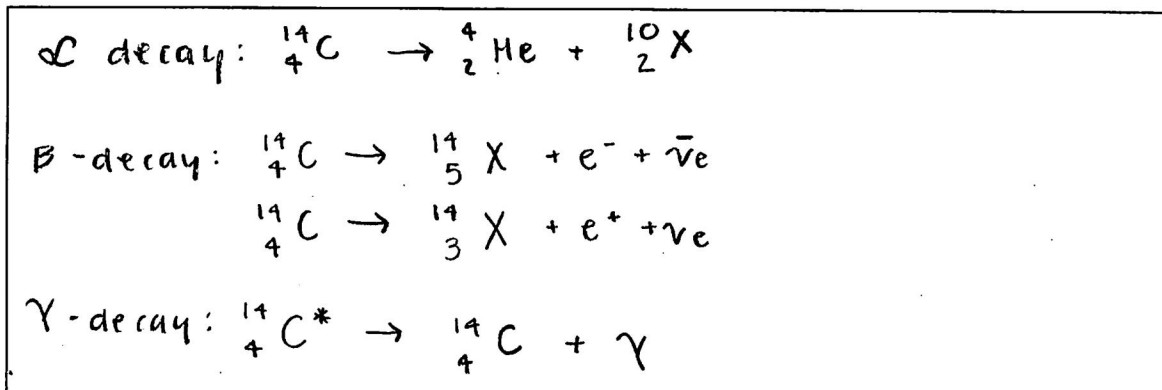 α decay: ¹⁴₄C → ⁴₂He + ¹⁰₂X
β-decay: ¹⁴₄C → ¹⁴₅X + e⁻ + ν̄e
¹⁴₄C → ¹⁴₃X + e⁺ + νe
γ-decay: ¹⁴₄C* → ¹⁴₄C + γ